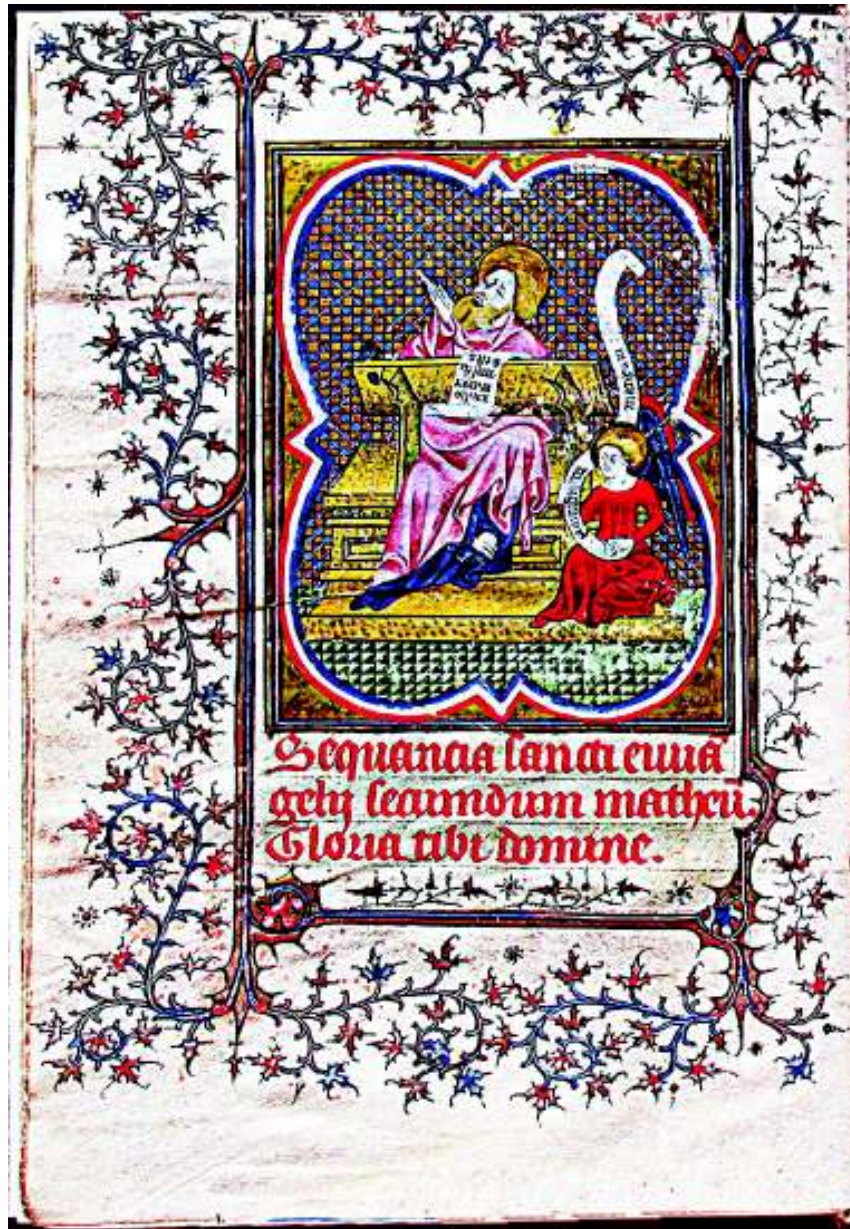 Sequancia sancti euuā
gelij secundum matheū.
Gloria tibi domine.